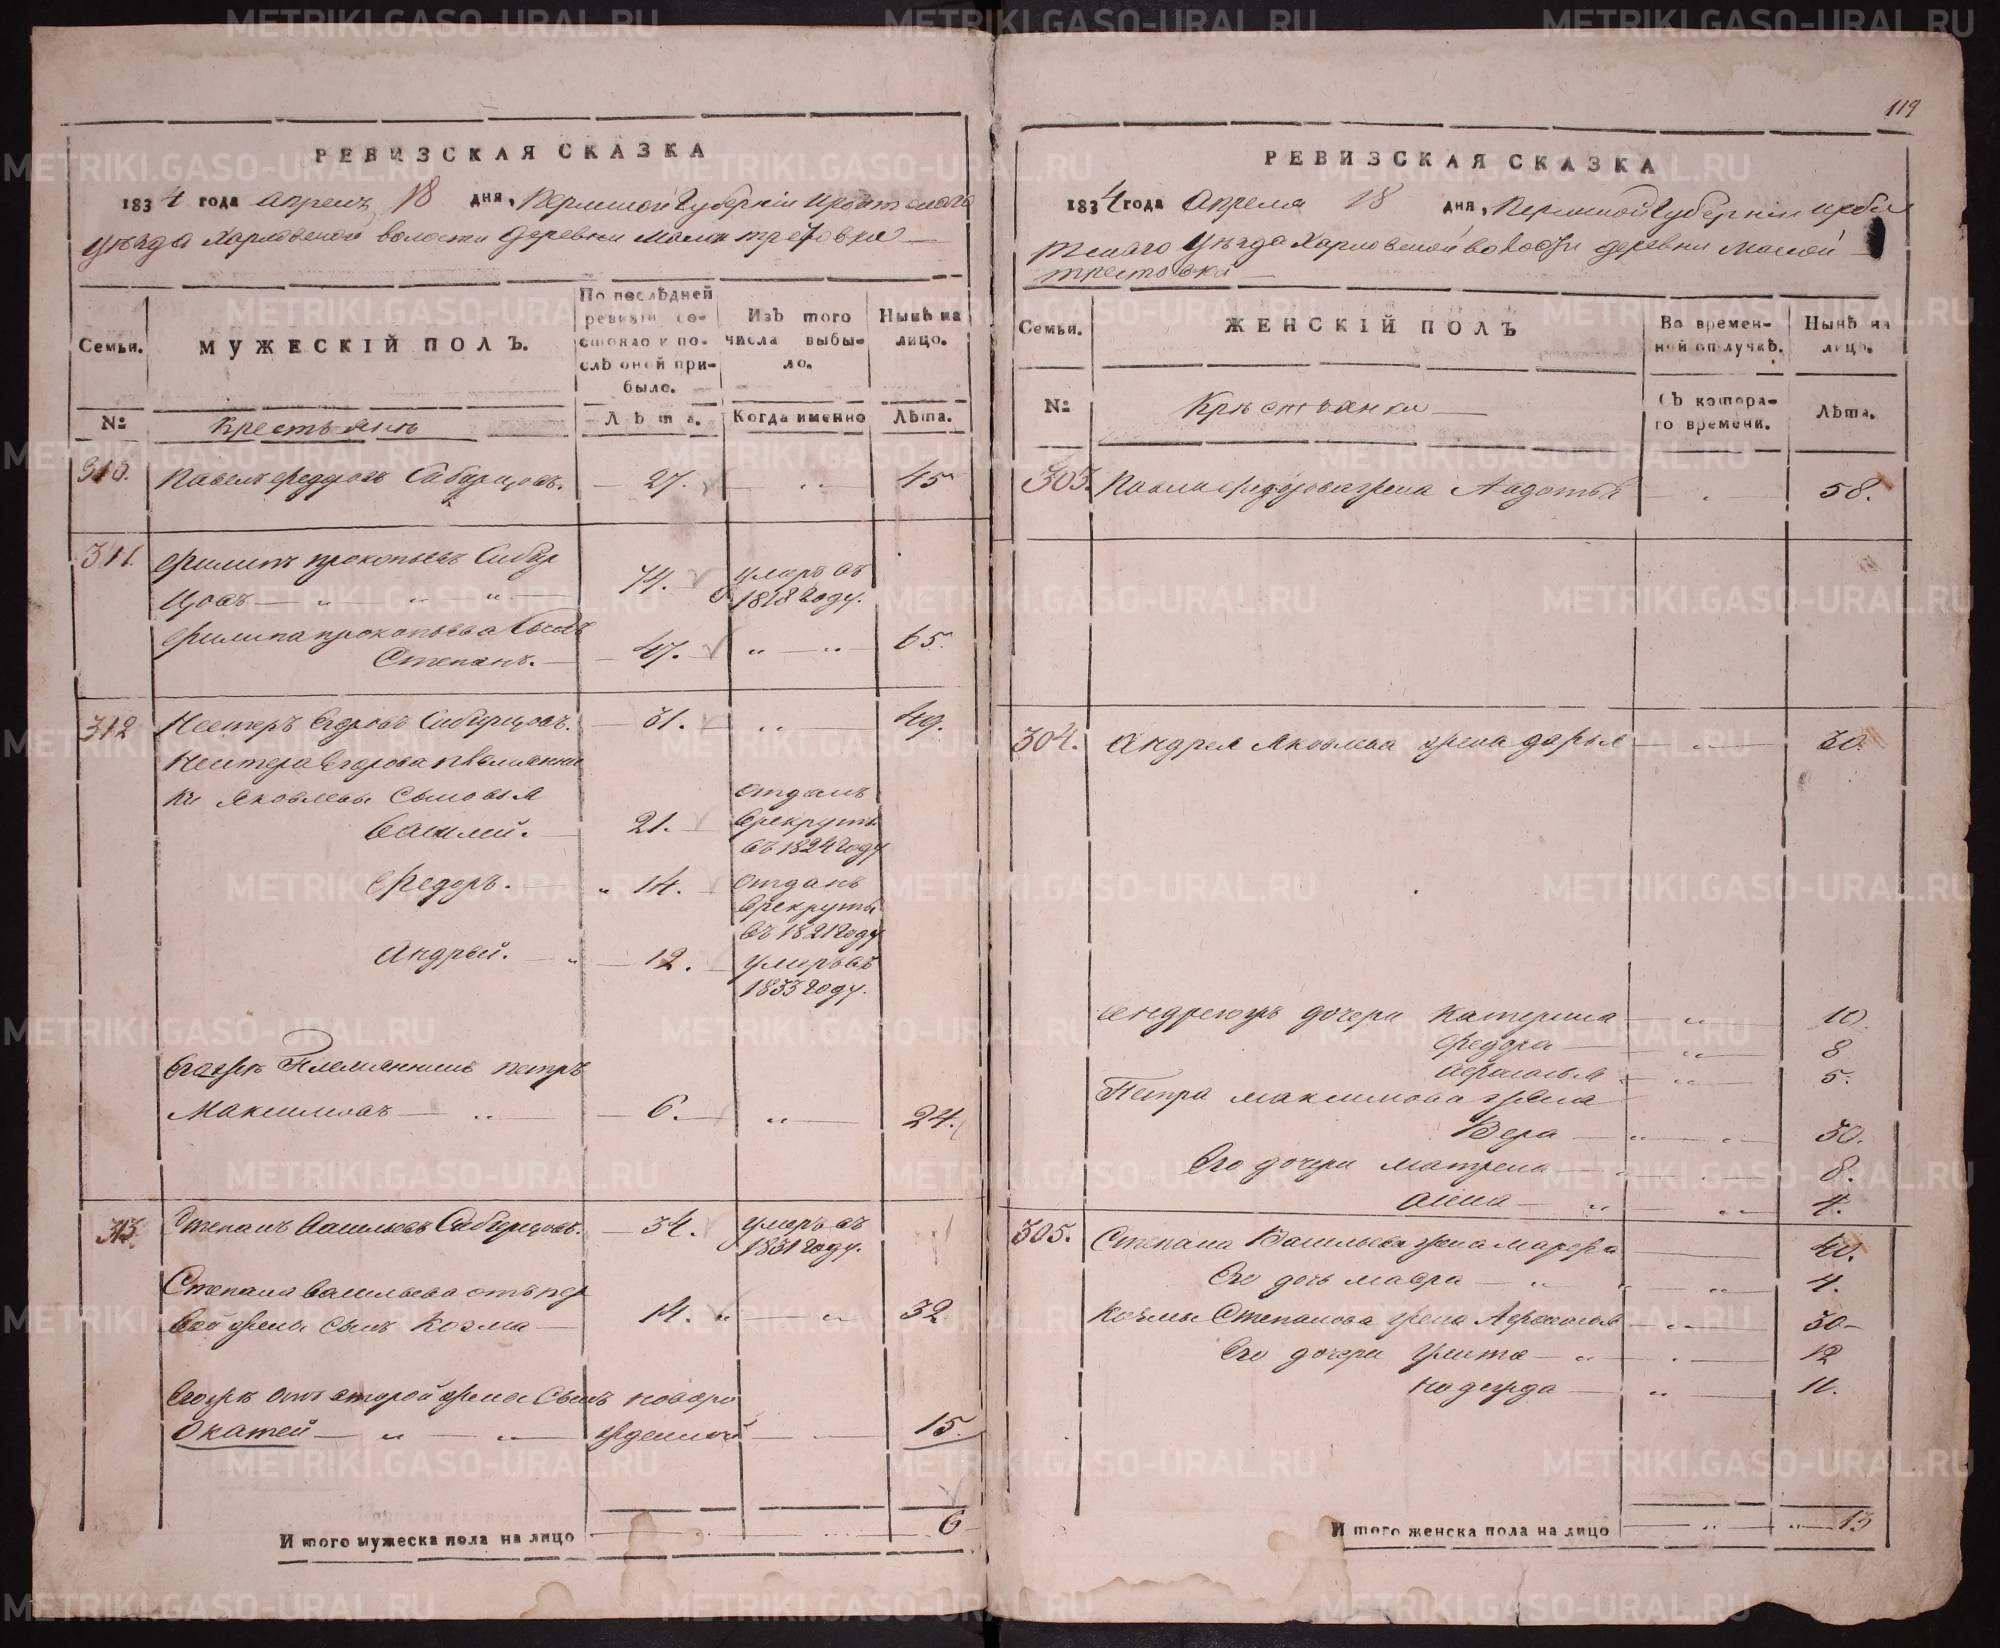 119
РЕВИЗСКАЯ СКАЗКА
1834 года апреля 18 дня, Пермской Губернiи Ирбитского
уѣзда Харловской волости деревни Малой трестовки
Семьи. МУЖЕСКІЙ ПОЛЪ. По послѣдней ревизіи состояло и послѣ оной прибыло. Изъ того числа выбыло. Нынѣ на лицо.
№ Крестьяне Лѣта. Когда именно Лѣта.
310. Павелъ Федоровъ Сибирцовъ. 27. 45
311. Филипъ прокопьевъ Сибир
цовъ 74. умеръ въ 1818 году.
Филипа прокопьева сынъ
Степанъ. 47. 65.
312 Нестеръ Егоровъ Сибирцовъ. 31. 49.
Нестера Егорова племянни
ки Яковлевы сыновья
Василей. 21. отданъ в рекруты въ 1824 году
Федоръ. 14. отданъ в рекруты въ 1821 году
Андрей. 12. умеръ въ 1833 году.
Егожъ Племянникъ петръ
Максимовъ 6. 24.
313. Степанъ Васильевъ Сибирцовъ. 34. умеръ въ 1831 году.
Степана Васильева отъ пер
вой жены сынъ Козма 14. 32
Егожъ отъ второй жены Сынъ новоро
Окатей жденной 15.
Итого мужеска пола на лицо 6
РЕВИЗСКАЯ СКАЗКА
1834 года Апреля 18 дня, Пермской Губернiи ирби
тскаго уѣзда Харловской волости деревни Малой
трестовки
Семьи. ЖЕНСКІЙ ПОЛЪ Во временной отлучкѣ. Нынѣ на лицо.
№ Крестьянки Съ котораго времени. Лѣта.
303. Павла Федорова жена Авдотья 58.
304. Андрея Яковлева жена дарья 30.
Андреюжъ дочери Катерина 10.
Федора 8
Афросинья 5.
Петра максимова жена
Вера 30.
Его дочери матрена 8.
анна 4.
305. Степана Васильева жена марфа 40.
Его дочь мавра 4.
Козмы Степанова жена Афросинья 30
Его дочери Улита 12
надежда 11.
Итого женска пола на лицо 13
METRIKI.GASO-URAL.RU